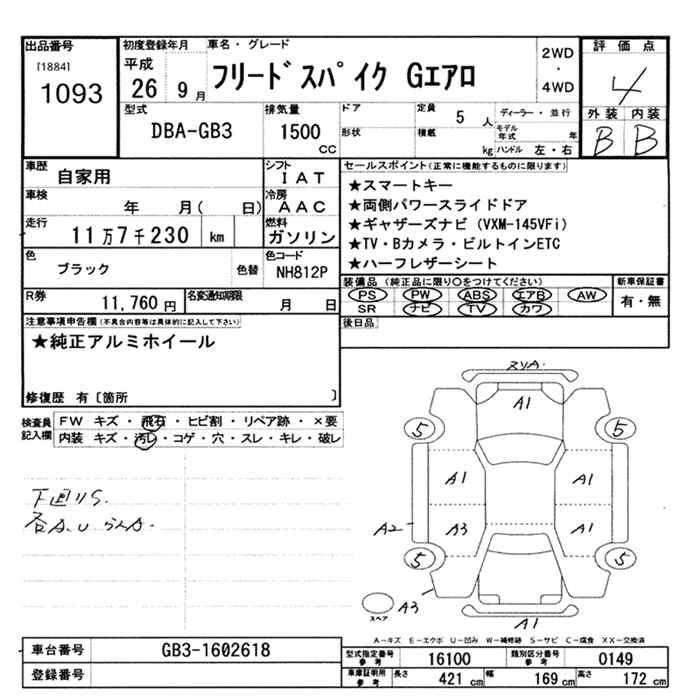 出品番号
[1884]
1093
初度登録年月
平成
26 9月
車名・グレード
フリードスパイク Gエアロ
2WD
・
4WD
評価点
4
外装 内装
B B
型式
DBA-GB3
排気量
1500
CC
ドア
形状
定員
5人
積載
kg
ディーラー・並行
モデル年式 年
ハンドル 左・右
車歴
自家用
シフト
IAT
車検
年 月( 日)
冷房
AAC
走行
11万7千230 km
燃料
ガソリン
色
ブラック
色替
色コード
NH812P
R券
11,760円
名変通知期限
月 日
セールスポイント(正常に機能するものに限ります)
★スマートキー
★両側パワースライドドア
★ギャザーズナビ (VXM-145VFi)
★TV・Bカメラ・ビルトインETC
★ハーフレザーシート
装備品 (純正品に限り○をつけてください)
PS PW ABS エアB AW
SR ナビ TV カワ
新車保証書
有・無
後日品
注意事項申告欄(不具合内容等は具体的に記入して下さい)
★純正アルミホイール
修復歴 有 [箇所 ]
検査員
記入欄
FW キズ・飛石・ヒビ割・リペア跡・×要
内装 キズ・汚レ・コゲ・穴・スレ・キレ・破レ
下回りS.
各A.U
A1
5 5
A1 A1
A2 A3 A1
5 5
スペア
A3
A1
A-キズ E-エクボ U-凹み W-補修跡 S-サビ C-腐食 XX-交換済
車台番号
GB3-1602618
登録番号
型式指定番号
参考
16100
類別区分番号
参考
0149
車庫証明用
参考
長さ 421cm 幅 169cm 高さ 172cm